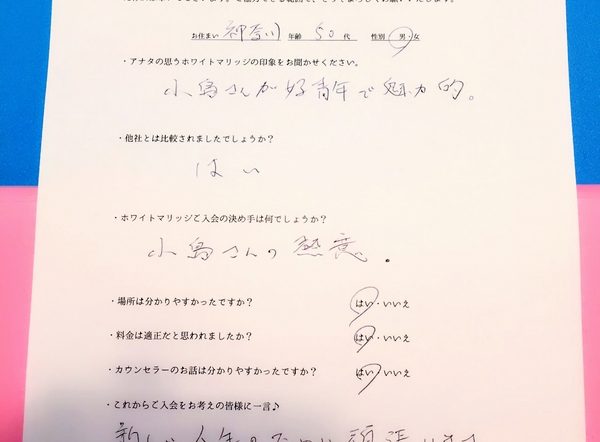 お住まい 神奈川 年齢 50 代 性別 男・女
・アナタの思うホワイトマリッジの印象をお聞かせください。
小島さんが好青年で魅力的。
・他社とは比較されましたでしょうか?
はい
・ホワイトマリッジご入会の決め手は何でしょうか?
小島さんの熱意。
・場所は分かりやすかったですか? はい・いいえ
・料金は適正だと思われましたか? はい・いいえ
・カウンセラーのお話は分かりやすかったですか? はい・いいえ
・これからご入会をお考えの皆様に一言♪
新しい人生のために頑張ります